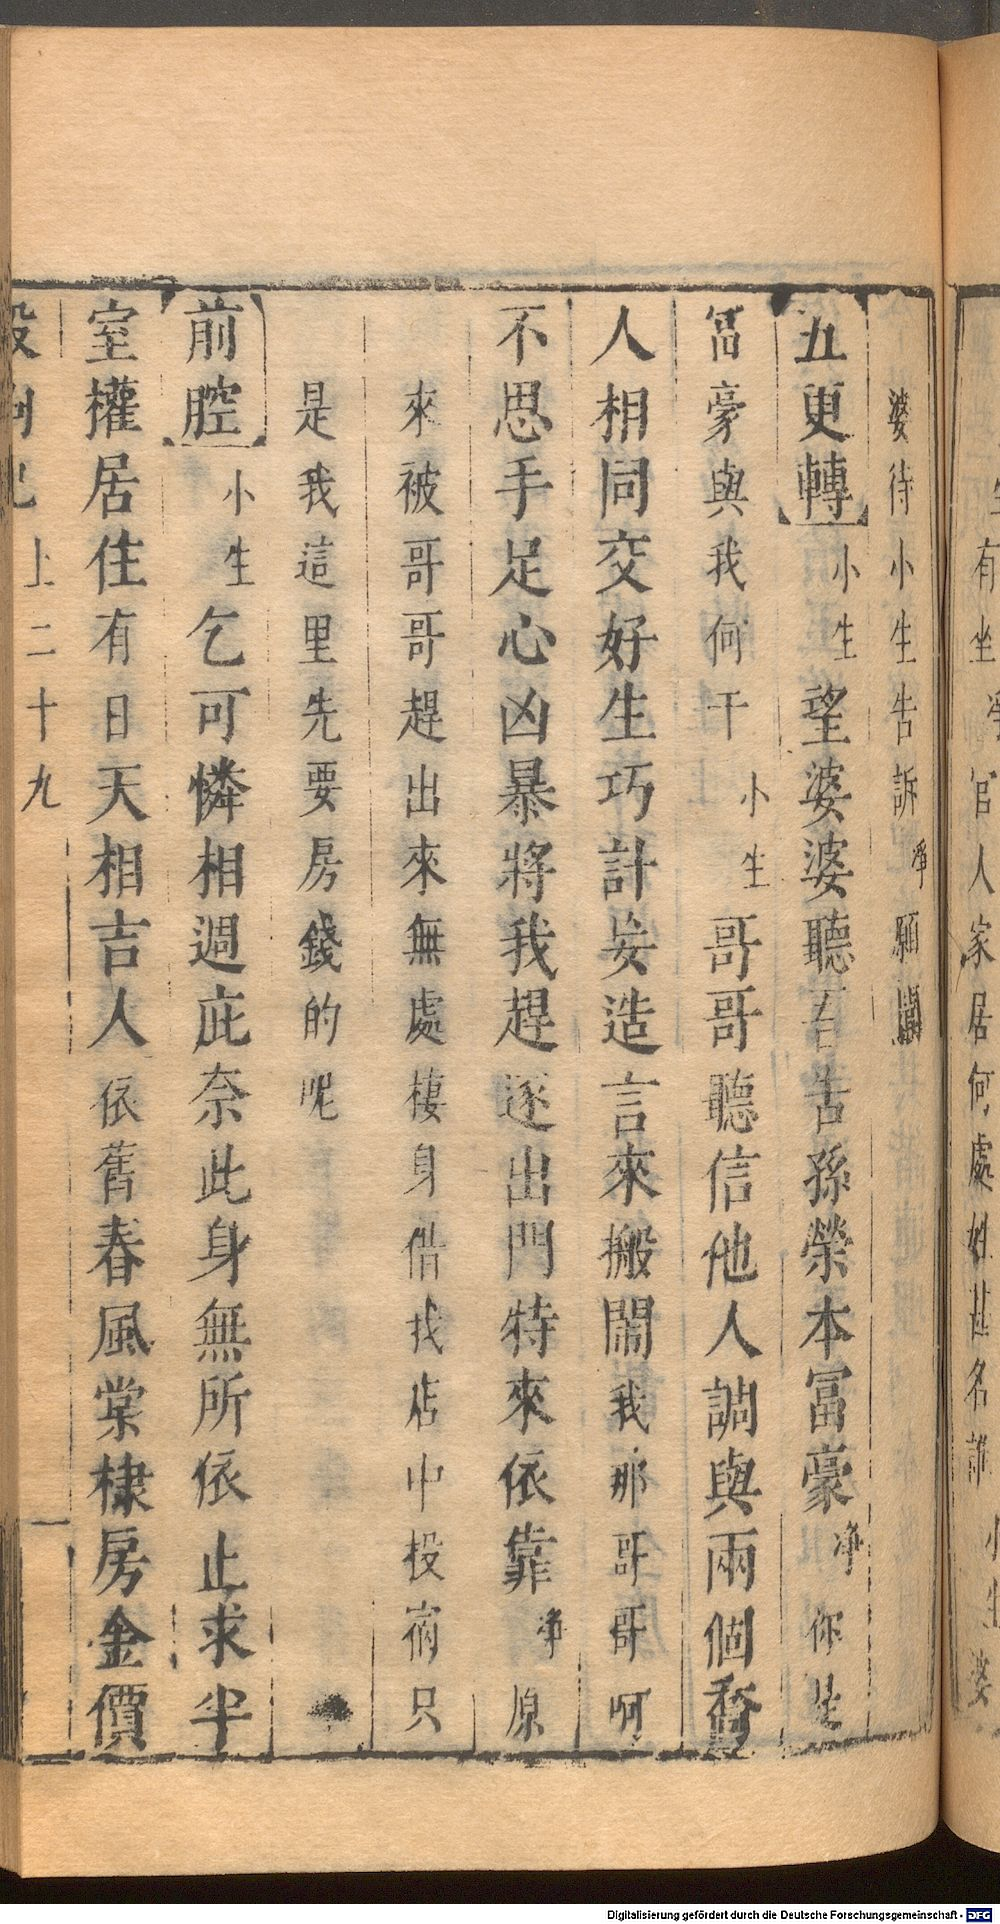 生有坐淨官人家居何處姓甚名誰小生婆
婆待小生告訴淨願聞
五更轉小生望婆婆聽吾告孫榮本富豪淨你是
富豪與我何干小生哥哥聽信他人調與兩個喬
人相同交好生巧計妄造言來搬鬧我那哥哥呵
不思手足心凶暴將我趕逐出門特來依靠淨原
來被哥哥趕出來無處棲身借我店中投宿只
是我這里先要房錢的呢
前腔小生乞可憐相週庇奈此身無所依止求半
室權居住有日天相吉人依舊春風棠棣房金價
殺狗記 上二十九 一
Digitalisierung gefördert durch die Deutsche Forschungsgemeinschaft - DFG